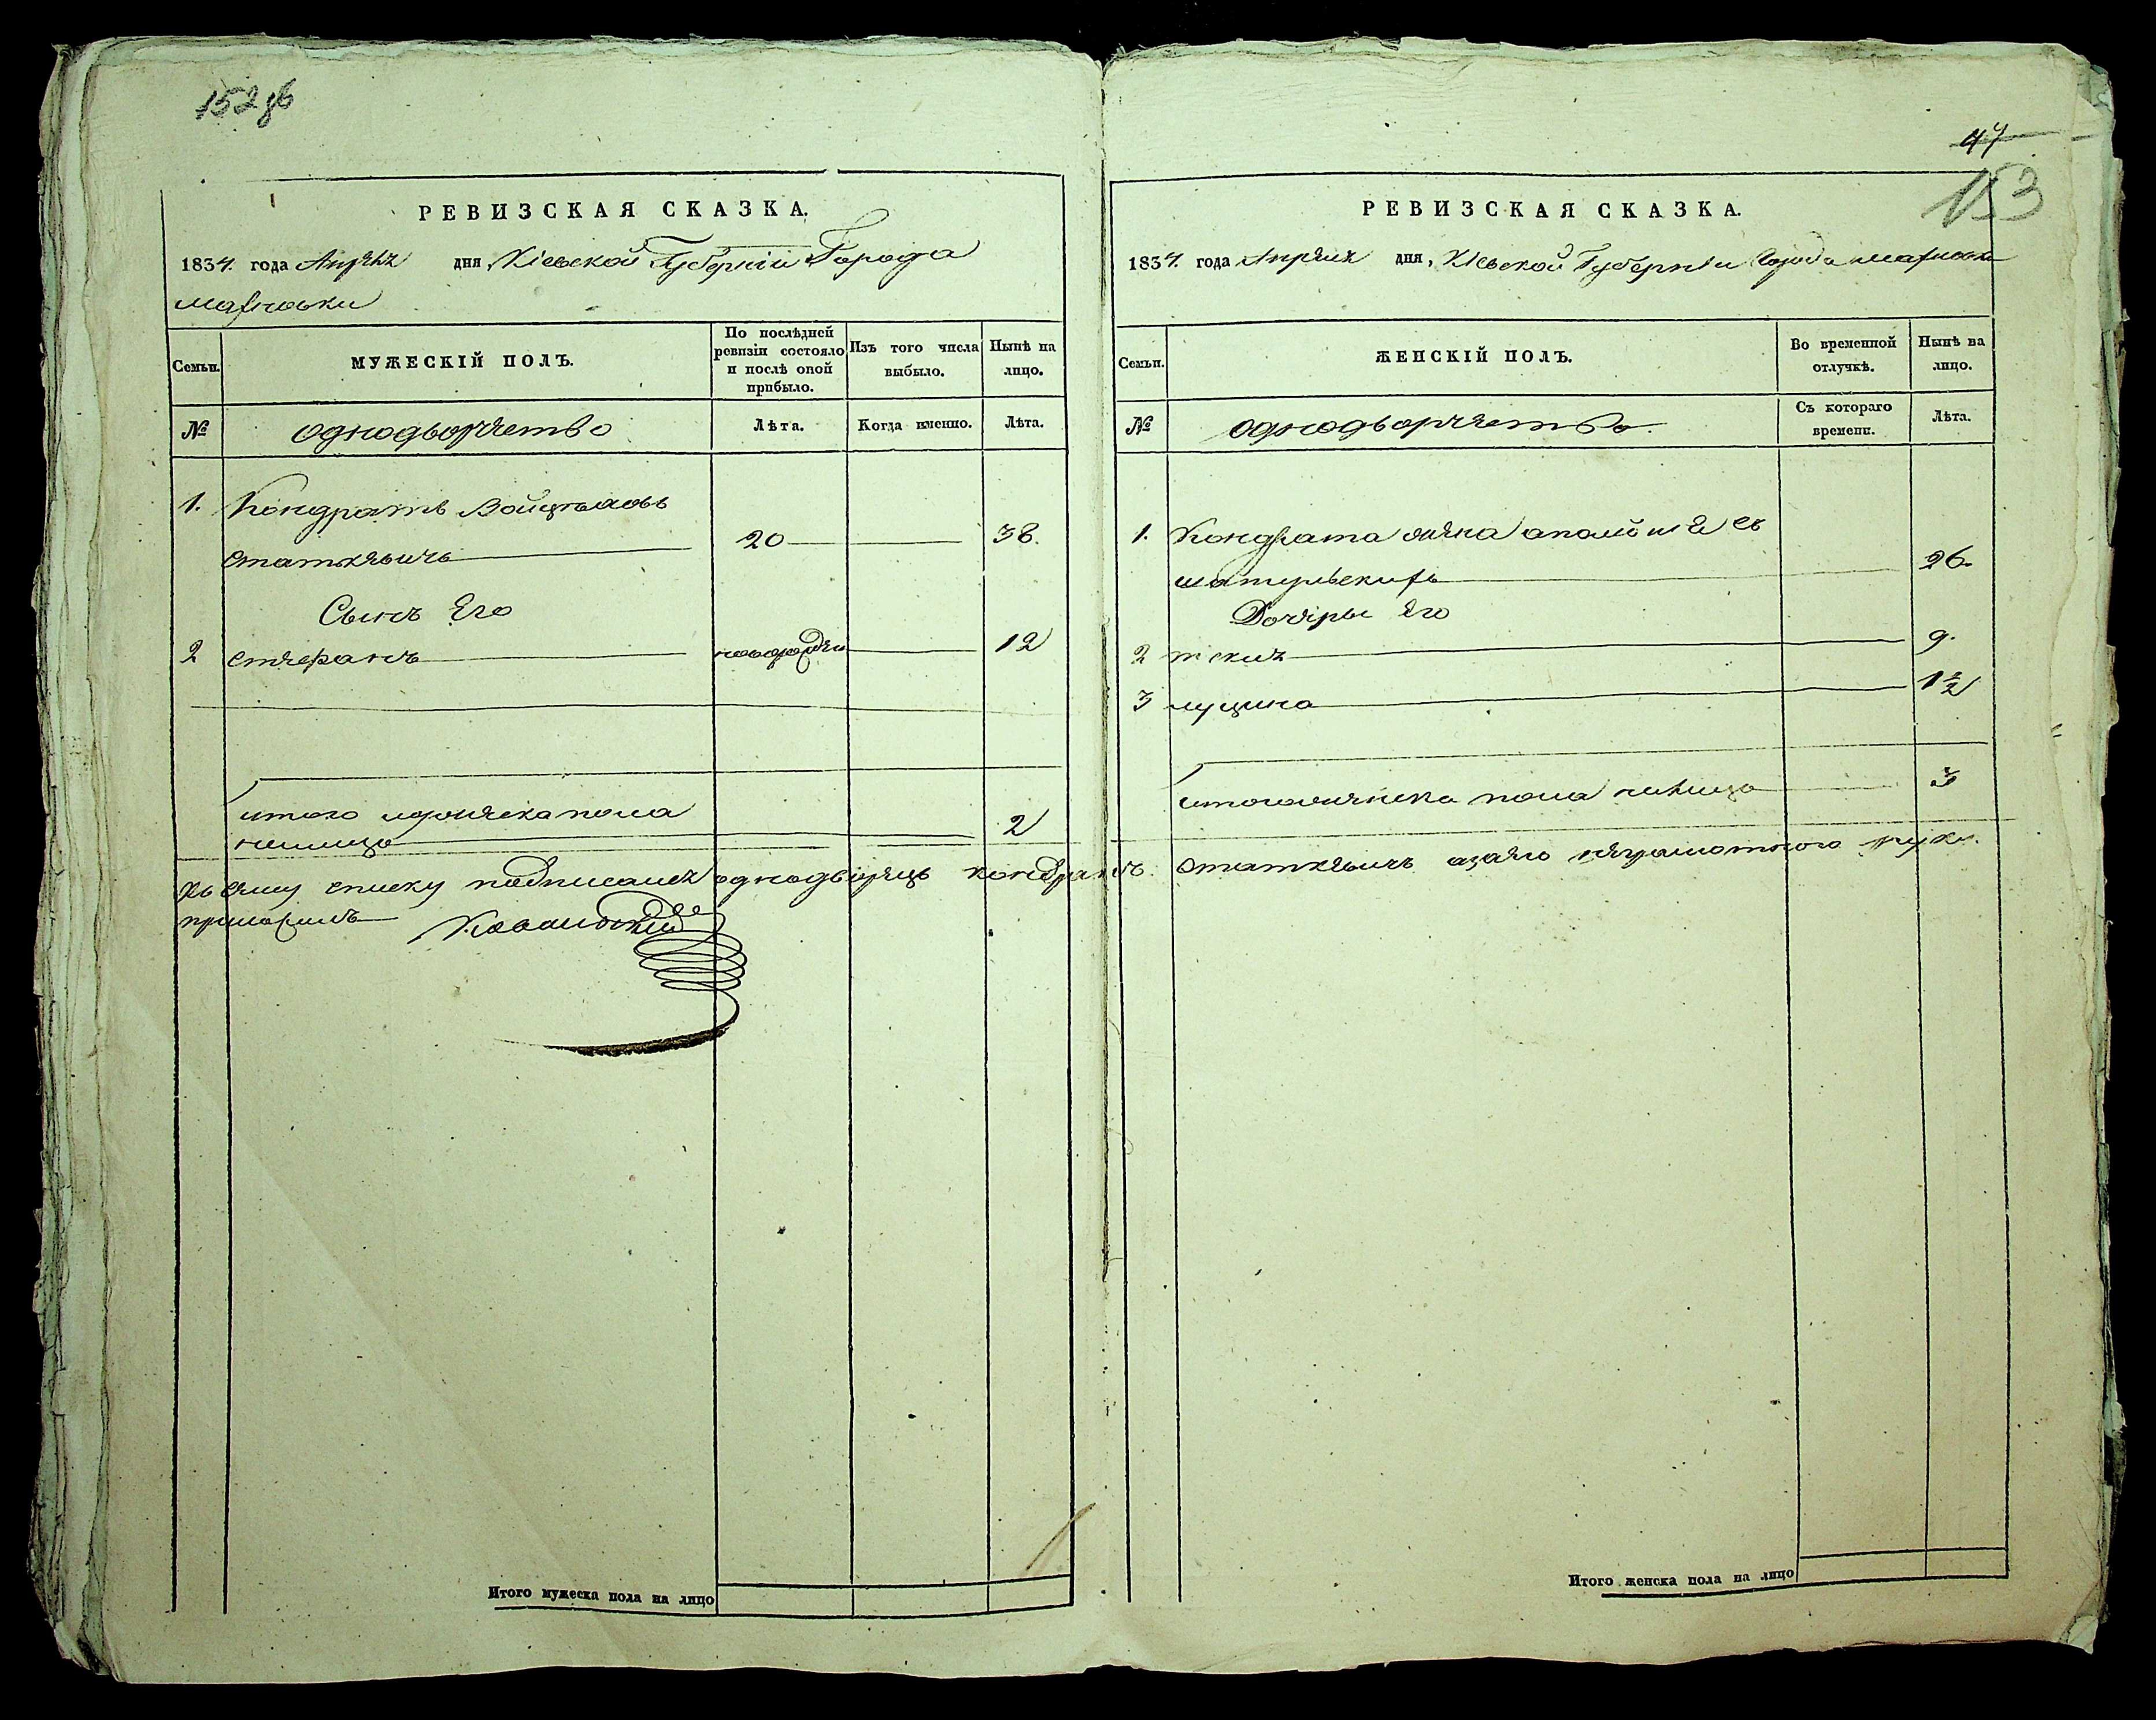 152 об
РЕВИЗСКАЯ СКАЗКА.
1834. года Апреля дня, Кіевской Губерніи Города
махновки
Семьи. МУЖЕСКІЙ ПОЛЪ. По послѣдней ревизіи состояло и послѣ оной прибыло. Изъ того числа выбыло. Нынѣ на лицо.
№ однодворчество Лѣта. Когда именно. Лѣта.
1. Кондратъ Войцеховъ
статкевичъ 20 38.
Сынъ Его
2 стефанъ 12
итого мужеска пола
налицо 2
47
153
РЕВИЗСКАЯ СКАЗКА.
1834. года Апреля дня, Кіевской Губерніи Города махновки
Семьи. ЖЕНСКІЙ ПОЛЪ. Во временной отлучкѣ. Нынѣ на лицо.
№ однодворчество. Съ котораго времени. Лѣта.
1. Кондрата жена
26.
Дочеры Его
2 9.
3 луцина 1½
итого женска пола налицо 3
Къ сему списку подписался однодворецъ кондратъ статкевичъ азаего неграмотного руку
приложилъ
Итого мужеска пола на лицо
Итого женска пола на лицо